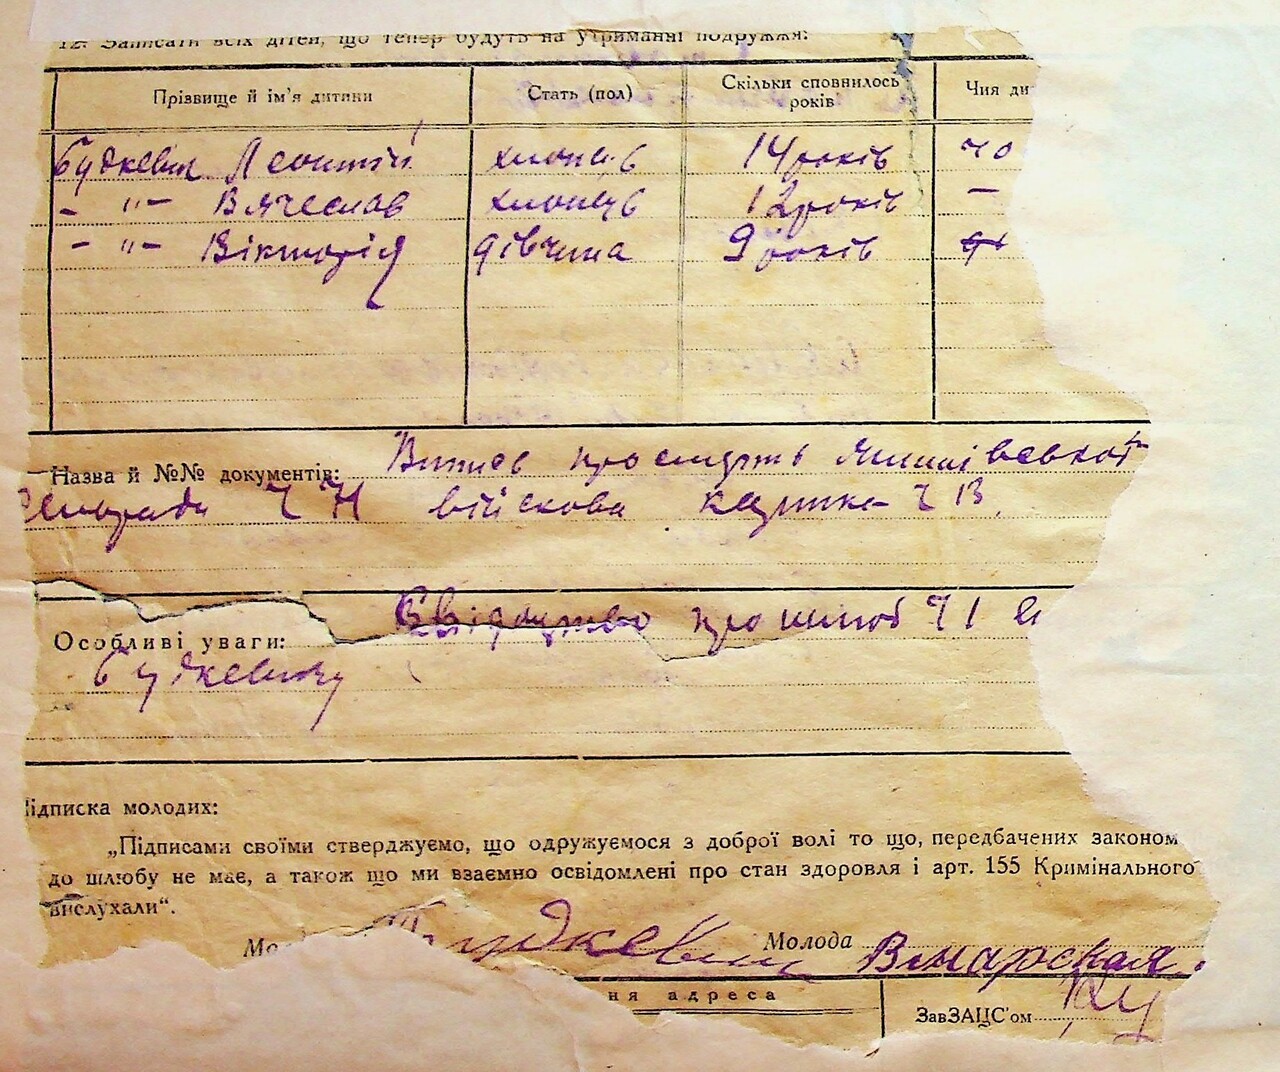 12. Записати всіх дітей, що тепер будуть на утриманні подружжя:
Прізвище й ім'я дитини Стать (пол) Скільки сповнилось років Чия ди
Будкевич Леонтій хлопець 14 років чо
— "— Вячеслав хлопець 12 років —
— "— Вікторія дівчина 9 років
Назва й №№ документів: Витяг про смерть
Сільради Ч військова картка Ч
Свідоцтво про шлюб Ч 1
Особливі уваги:
Будкевичу
ідписка молодих:
„Підписами своїми стверджуємо, що одружуємося з доброї волі то що, передбачених законом
до шлюбу не має, а також що ми взаємно освідомлені про стан здоровля і арт. 155 Кримінального
вислухали“.
Мо Будкевич Молода Винарская.
ня адреса
ЗавЗАЦС'ом